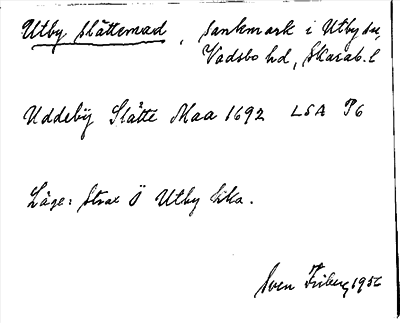 Utby slättemad, sankmark i Utby sn,
Vadsbo hd, Skarab. l
Uddebÿ Slätte Maa 1692 LSA P6
Läge: Strax Ö Utby kka.
Sven Friberg 1956